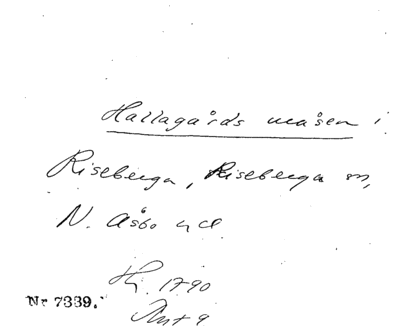 Hallagårds måsen i
Riseberga, Riseberga sn,
N. Åsbo hd
Hj. 1790
Nr 7339.
Ant 9